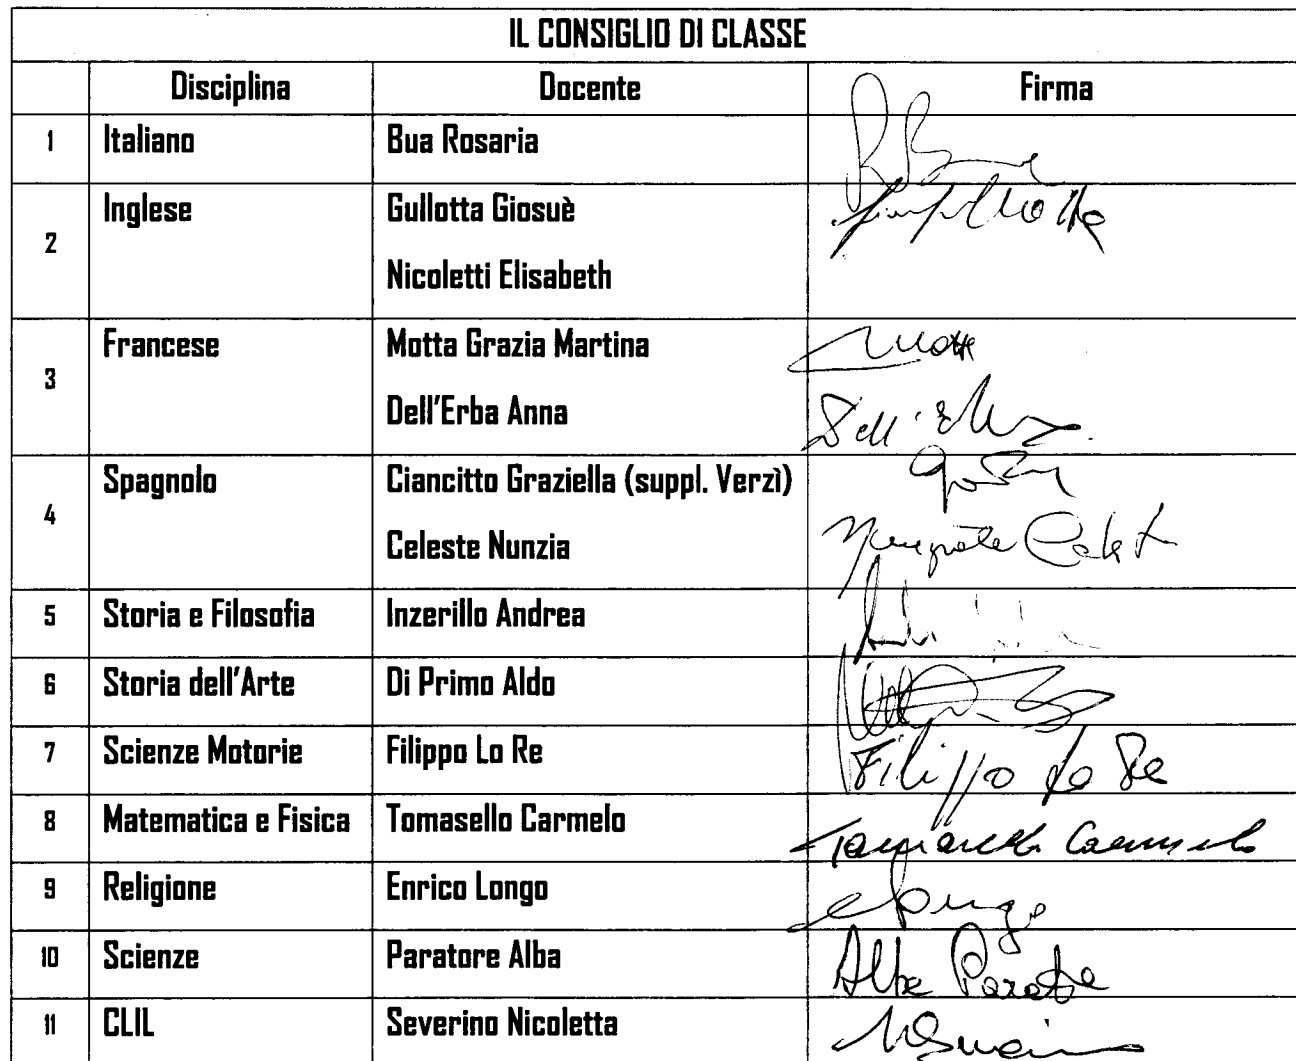 IL CONSIGLIO DI CLASSE
Disciplina Docente Firma
1 Italiano Bua Rosaria
2 Inglese Gullotta Giosuè
Nicoletti Elisabeth
3 Francese Motta Grazia Martina Motta
Dell'Erba Anna Dell'Erba
4 Spagnolo Ciancitto Graziella (suppl. Verzì)
Celeste Nunzia
5 Storia e Filosofia Inzerillo Andrea
6 Storia dell'Arte Di Primo Aldo
7 Scienze Motorie Filippo Lo Re Filippo Lo Re
8 Matematica e Fisica Tomasello Carmelo Tomasello Carmelo
9 Religione Enrico Longo
10 Scienze Paratore Alba Alba Paratore
11 CLIL Severino Nicoletta